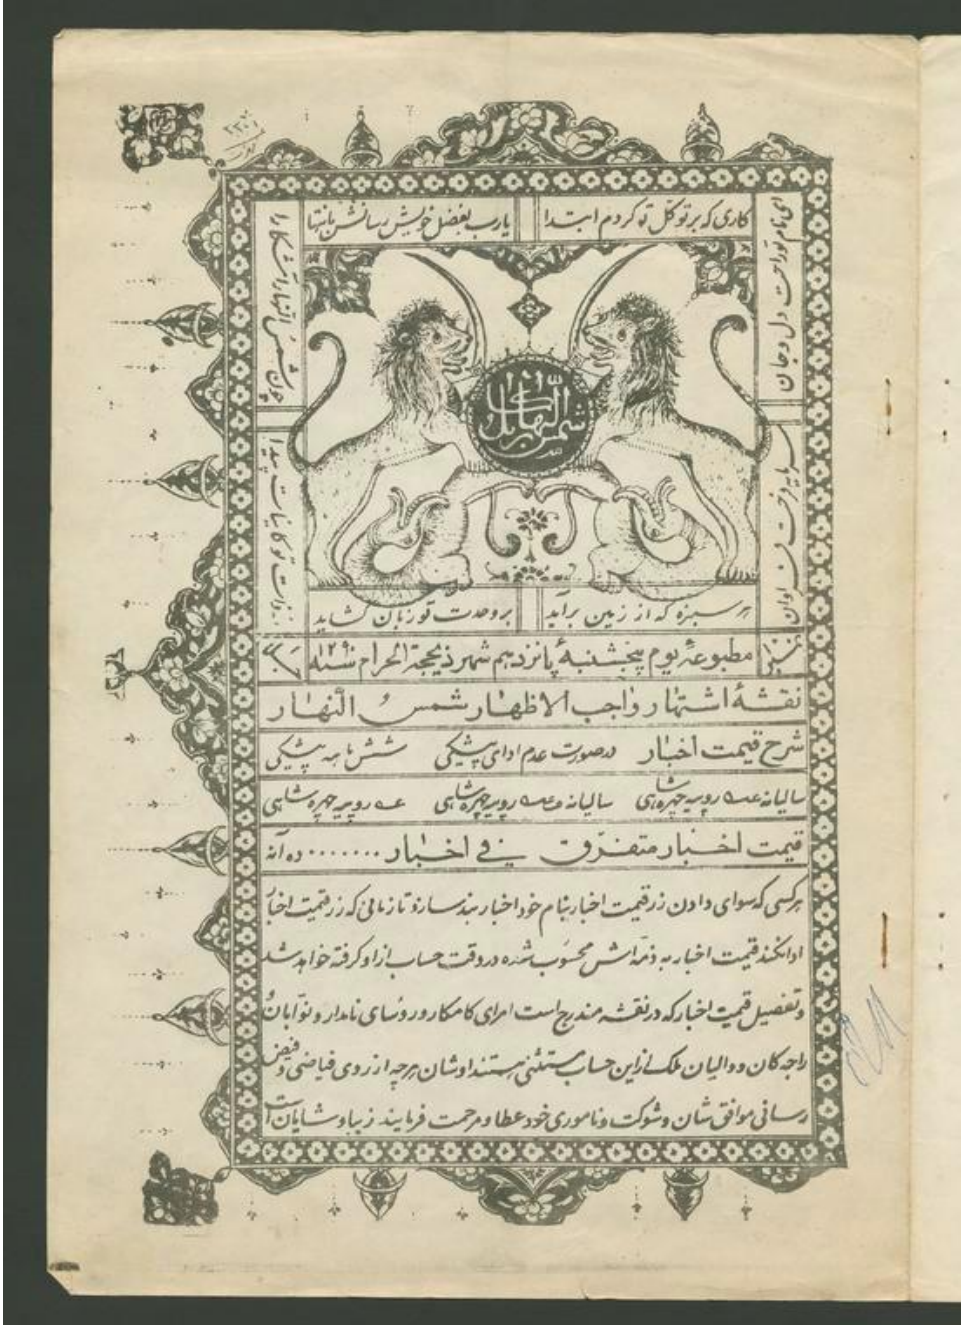 کاری که بر توکل تو کردم ابتدا یارب بفضل خویش رسانش بانتها
ای نام تو راحت دل و جان
سرمایه فرحت فراوان
چون شمس النهار آشکارا
از ذات تو کاینات پیدا
شمس النهار کابل
هر سبزه که از زمین برآید بروحدت تو زبان گشاید
مطبوعهٔ یوم پنجشنبهٔ پانزدهم شهر ذیحجة الحرام سنه ۱۲۹۰
نقشهٔ اشتهار واجب الاظهار شمسُ النّهار
شرح قیمت اخبار درصورت عدم ادای پیشکی شش ماهه پیشکی
سالیانه روپیه چهره شاهی سالیانه روپیه چهره شاهی روپیه چهره شاهی
قیمت اخبار متفرق فی اخبار ....... ده آنه
هر کسی که سوای دادن زر قیمت اخبار بنام خود اخبار بند سازد تا زمانی که زر قیمت اخبار
ادا نکند قیمت اخبار به ذمه اش محسوب شده در وقت حساب از او گرفته خواهد شد
و تفصیل قیمت اخبار که در نقشه مندرج است امرای کامکار و روسای نامدار و نوآبان
راجه کان و والیان ملک از این حساب مستثنی هستند اوشان هرچه از روی فیاضی و فیض
رسانی موافق شان و شوکت و ناموری خود عطا و مرحمت فرمایند زیبا و شایان است